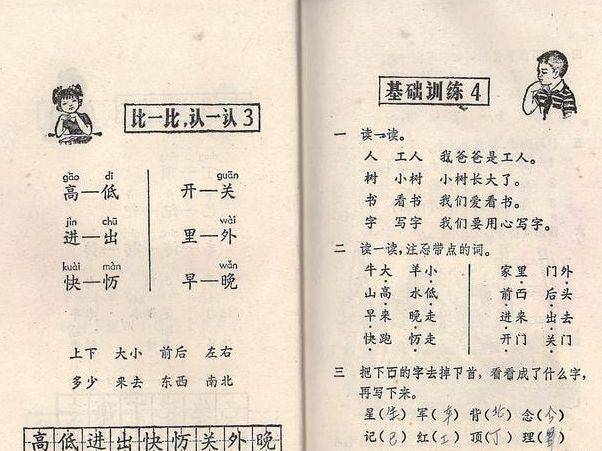 比一比,认一认 3
gāo dī
高—低
jìn chū
进—出
kuài màn
快—
guān
开—关
wài
里—外
wǎn
早—晚
上下 大小 前后 左右
多少 来去 东西 南北
高低进出快 关外晚
基础训练 4
一 读一读。
人 工人 我爸爸是工人。
树 小树 小树长大了。
书 看书 我们爱看书。
字 写字 我们要用心写字。
二 读一读,注 带点的词。
牛大 羊小 家里 门外
山高 水低 前西 后头
早来 晚走 进来 出去
快跑 走 开门 关门
三 把下 的字去掉 首,看看成了什么字,
再写下来。
星(生) 军(车) 背(北) 念(今)
记(己) 红(工) 顶(丁) 理(里)